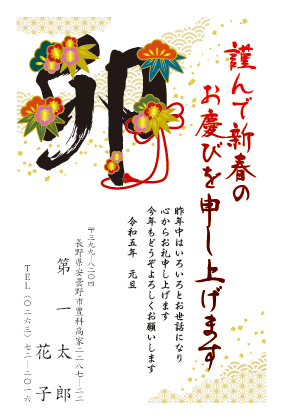 卯
謹んで新春の
お慶びを申し上げます
昨年中はいろいろとお世話になり
心からお礼申し上げます
今年もどうぞよろしくお願いします
令和五年 元旦
〒三九九-八二〇四
長野県安曇野市豊科高家二二八七-二二
第一 太郎
花子
TEL(〇二六三)七二-二〇一六